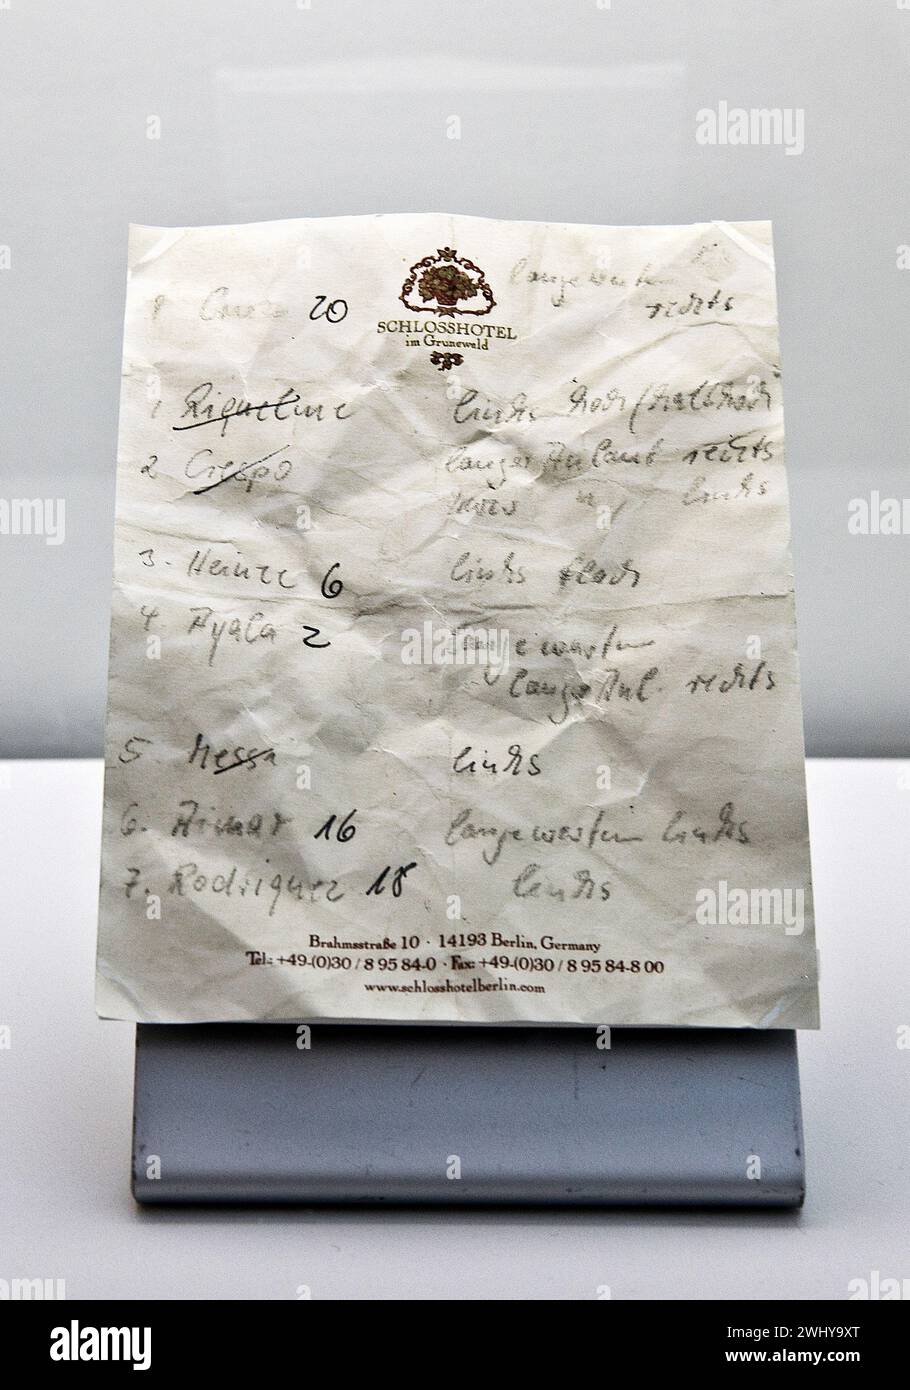 Cruz 20
langewarten
rechts
SCHLOSSHOTEL
im Grunewald
1 Riquelme links hoch/halbhoch
2 Crespo langer Anlauf rechts
kurz " links
3. Heinze 6 links flach
4. Ayala 2 langewarten
lange Anl. rechts
5 Messi links
6. Aimar 16 langewarten links
7. Rodriguez 18 links
Brahmsstraße 10 · 14193 Berlin, Germany
Tel.: +49-(0)30 / 8 95 84-0 · Fax: +49-(0)30 / 8 95 84-8 00
www.schlosshotelberlin.com
alamy
alamy
alamy
alamy
alamy
alamy
Image ID: 2WHY9XT
www.alamy.com